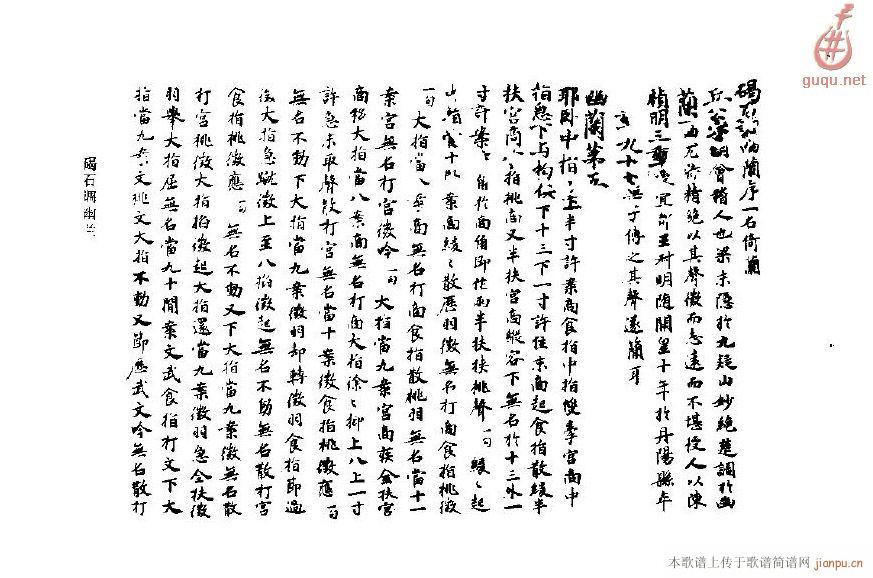 碣石調幽蘭序一名倚蘭
丘公字明會稽人也梁末隱於九疑山妙絕楚調於幽
蘭一曲尤特精絕以其聲微而志遠而不堪授人以陳
禎明三年授宜都王叔明隨開皇十年於丹陽縣卒
年九十七無子傳之其聲遂簡耳
幽蘭第五
耶臥中指半寸許案商食指中指雙牽宮商中
指急下與拘俱下十三下一寸許住末商起食指散緩半
扶宮商食指挑商又半扶宮商縱容下無名於十三外一
寸許案商角於商角即作兩半扶挾挑聲一句緩緩起
案商緩緩散歷羽徵無名打商食指挑徵
一句大指當八案商無名打商食指散挑羽無名當十一
案宮無名打宮徵吟一句大指當九案宮商疾全扶宮
商移大指當八案商無名打商大指徐徐抑上八上一寸
許急末取聲散打宮無名當十案徵食指挑徵應一句
無名不動下大指當九案徵羽却轉徵羽食指節過
徵大指急蹴徵上至八抬徵起無名不動無名散打宮
食指挑徵應一句無名不動又下大指當九案徵無名散
打宮挑徵大指抬徵起大指還當九案徵羽急全扶徵
羽舉大指屈無名當九十間案文武食指打文下大
指當九案文挑文大指不動又節歷武文吟無名散打
碣石调幽兰
guqu.net
本歌谱上传于歌谱简谱网 jianpu.cn